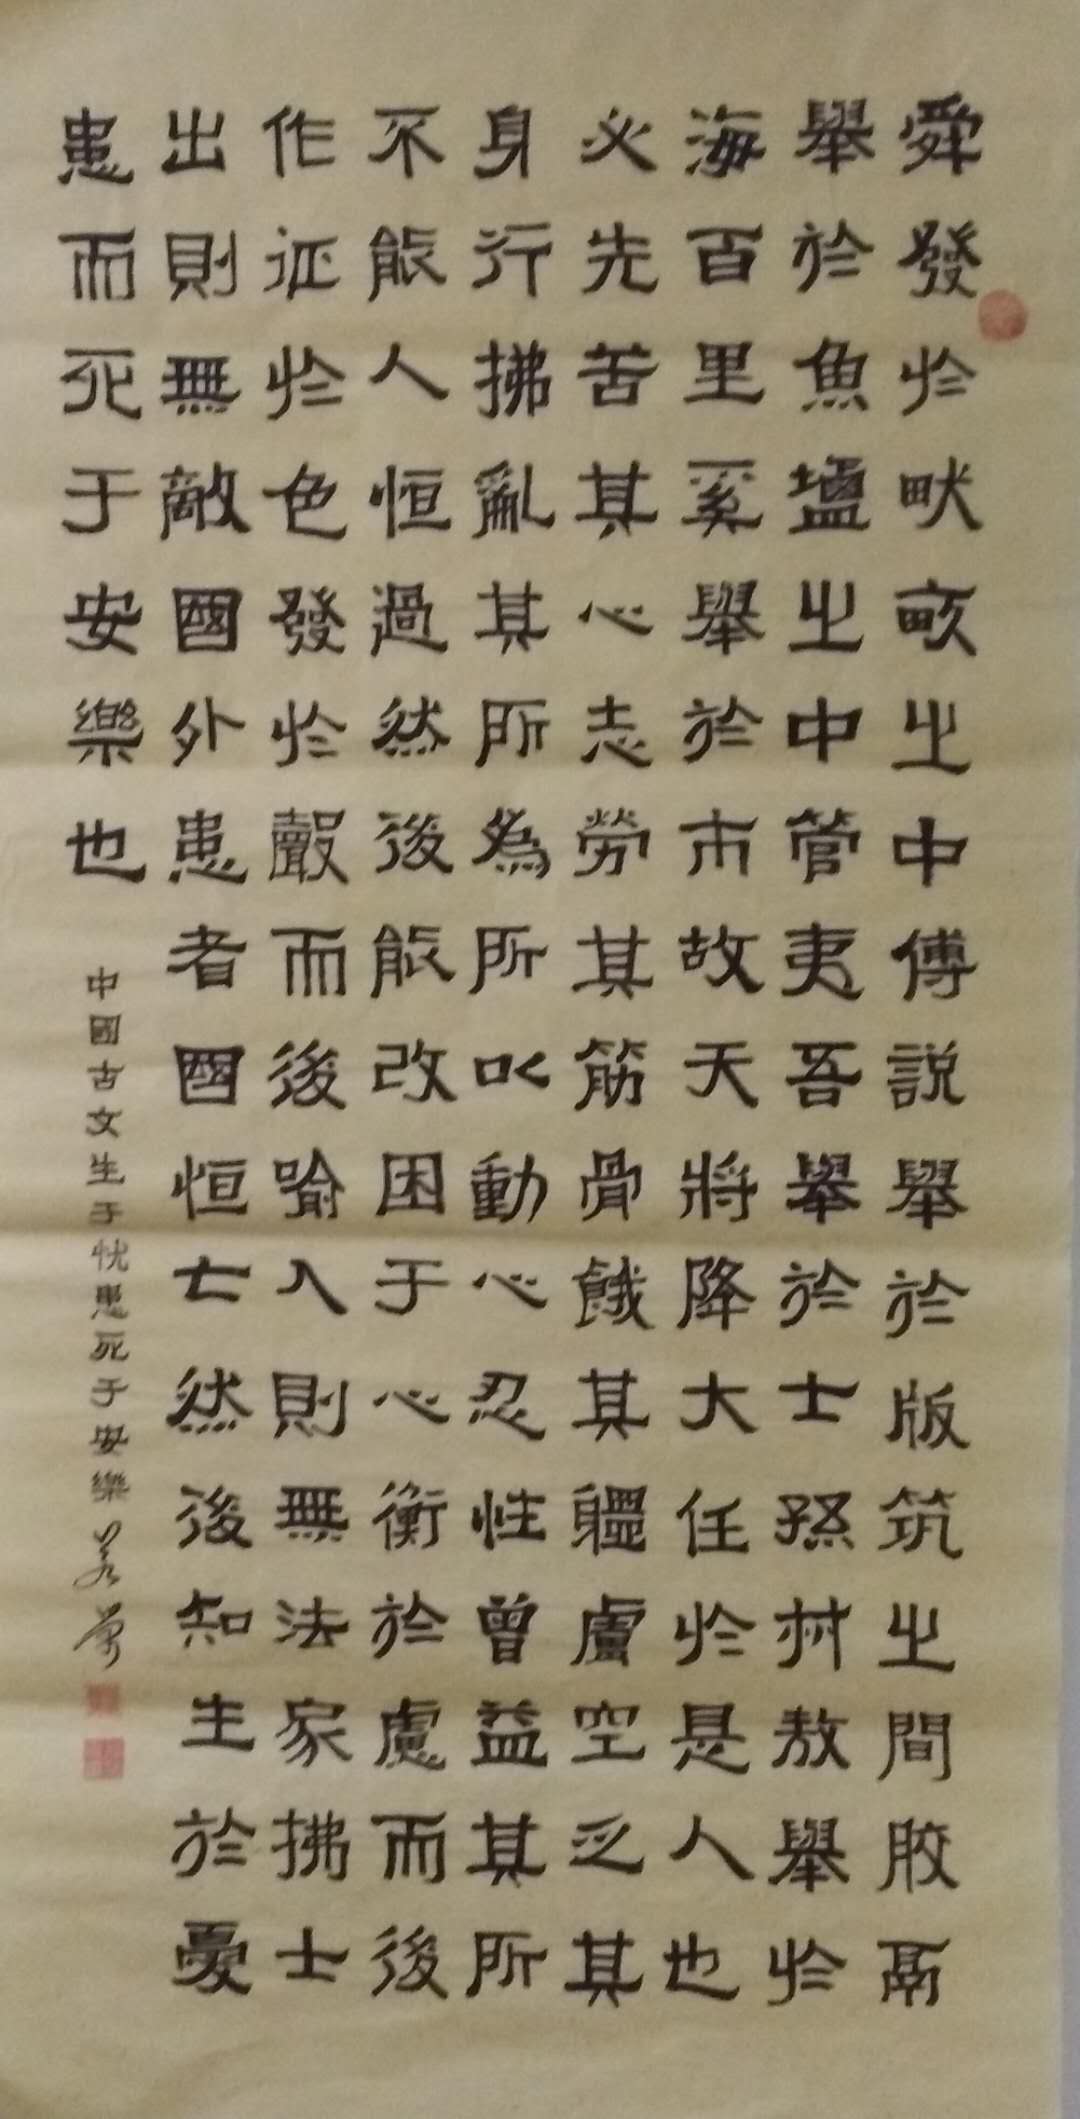 舜發於畎畝之中傅説舉於版筑之間胶鬲
舉於魚鹽之中管夷吾舉於士孫叔敖舉於
海百里奚舉於市故天將降大任於是人也
必先苦其心志勞其筋骨餓其體膚空乏其
身行拂亂其所為所以動心忍性曾益其所
不能人恒過然後能改困于心衡於慮而後
作征於色發於聲而後喻入則無法家拂士
出則無敵國外患者國恒亡然後知生於憂
患而死于安樂也
中國古文生于忧患死于安樂